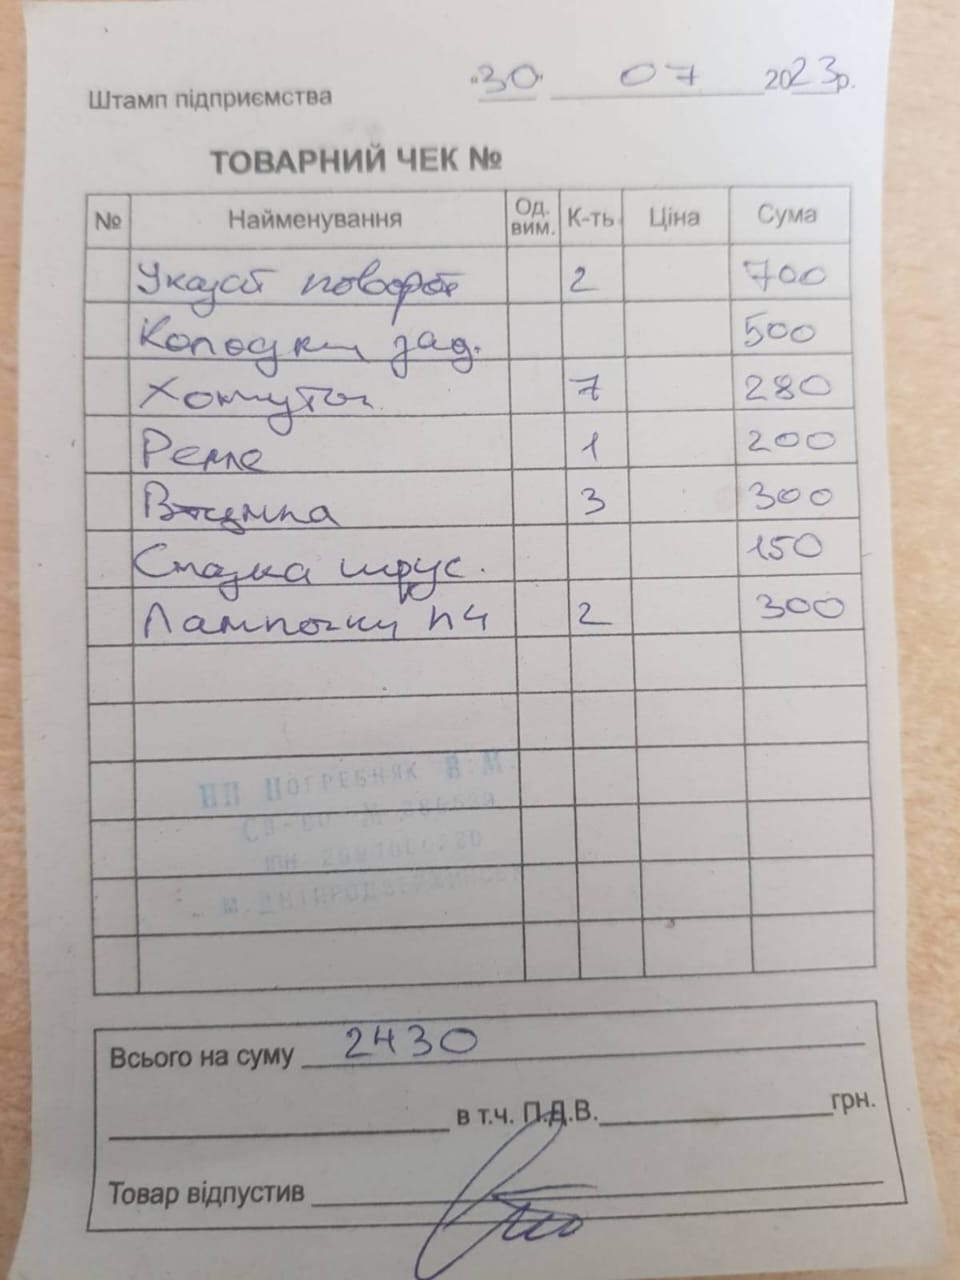 Штамп підприємства "30" 07 2023р.
ТОВАРНИЙ ЧЕК №
№ Найменування Од. вим. К-ть Ціна Сума
Указат поворот 2 700
Колодки зад. 500
Хомуты 7 280
Реле 1 200
3 300
Смазка шрус. 150
Лампочки 2 300
ПП Погребняк В.М.
Св-во №
ІПН
м.
Всього на суму 2430
в т.ч. П.Д.В. грн.
Товар відпустив